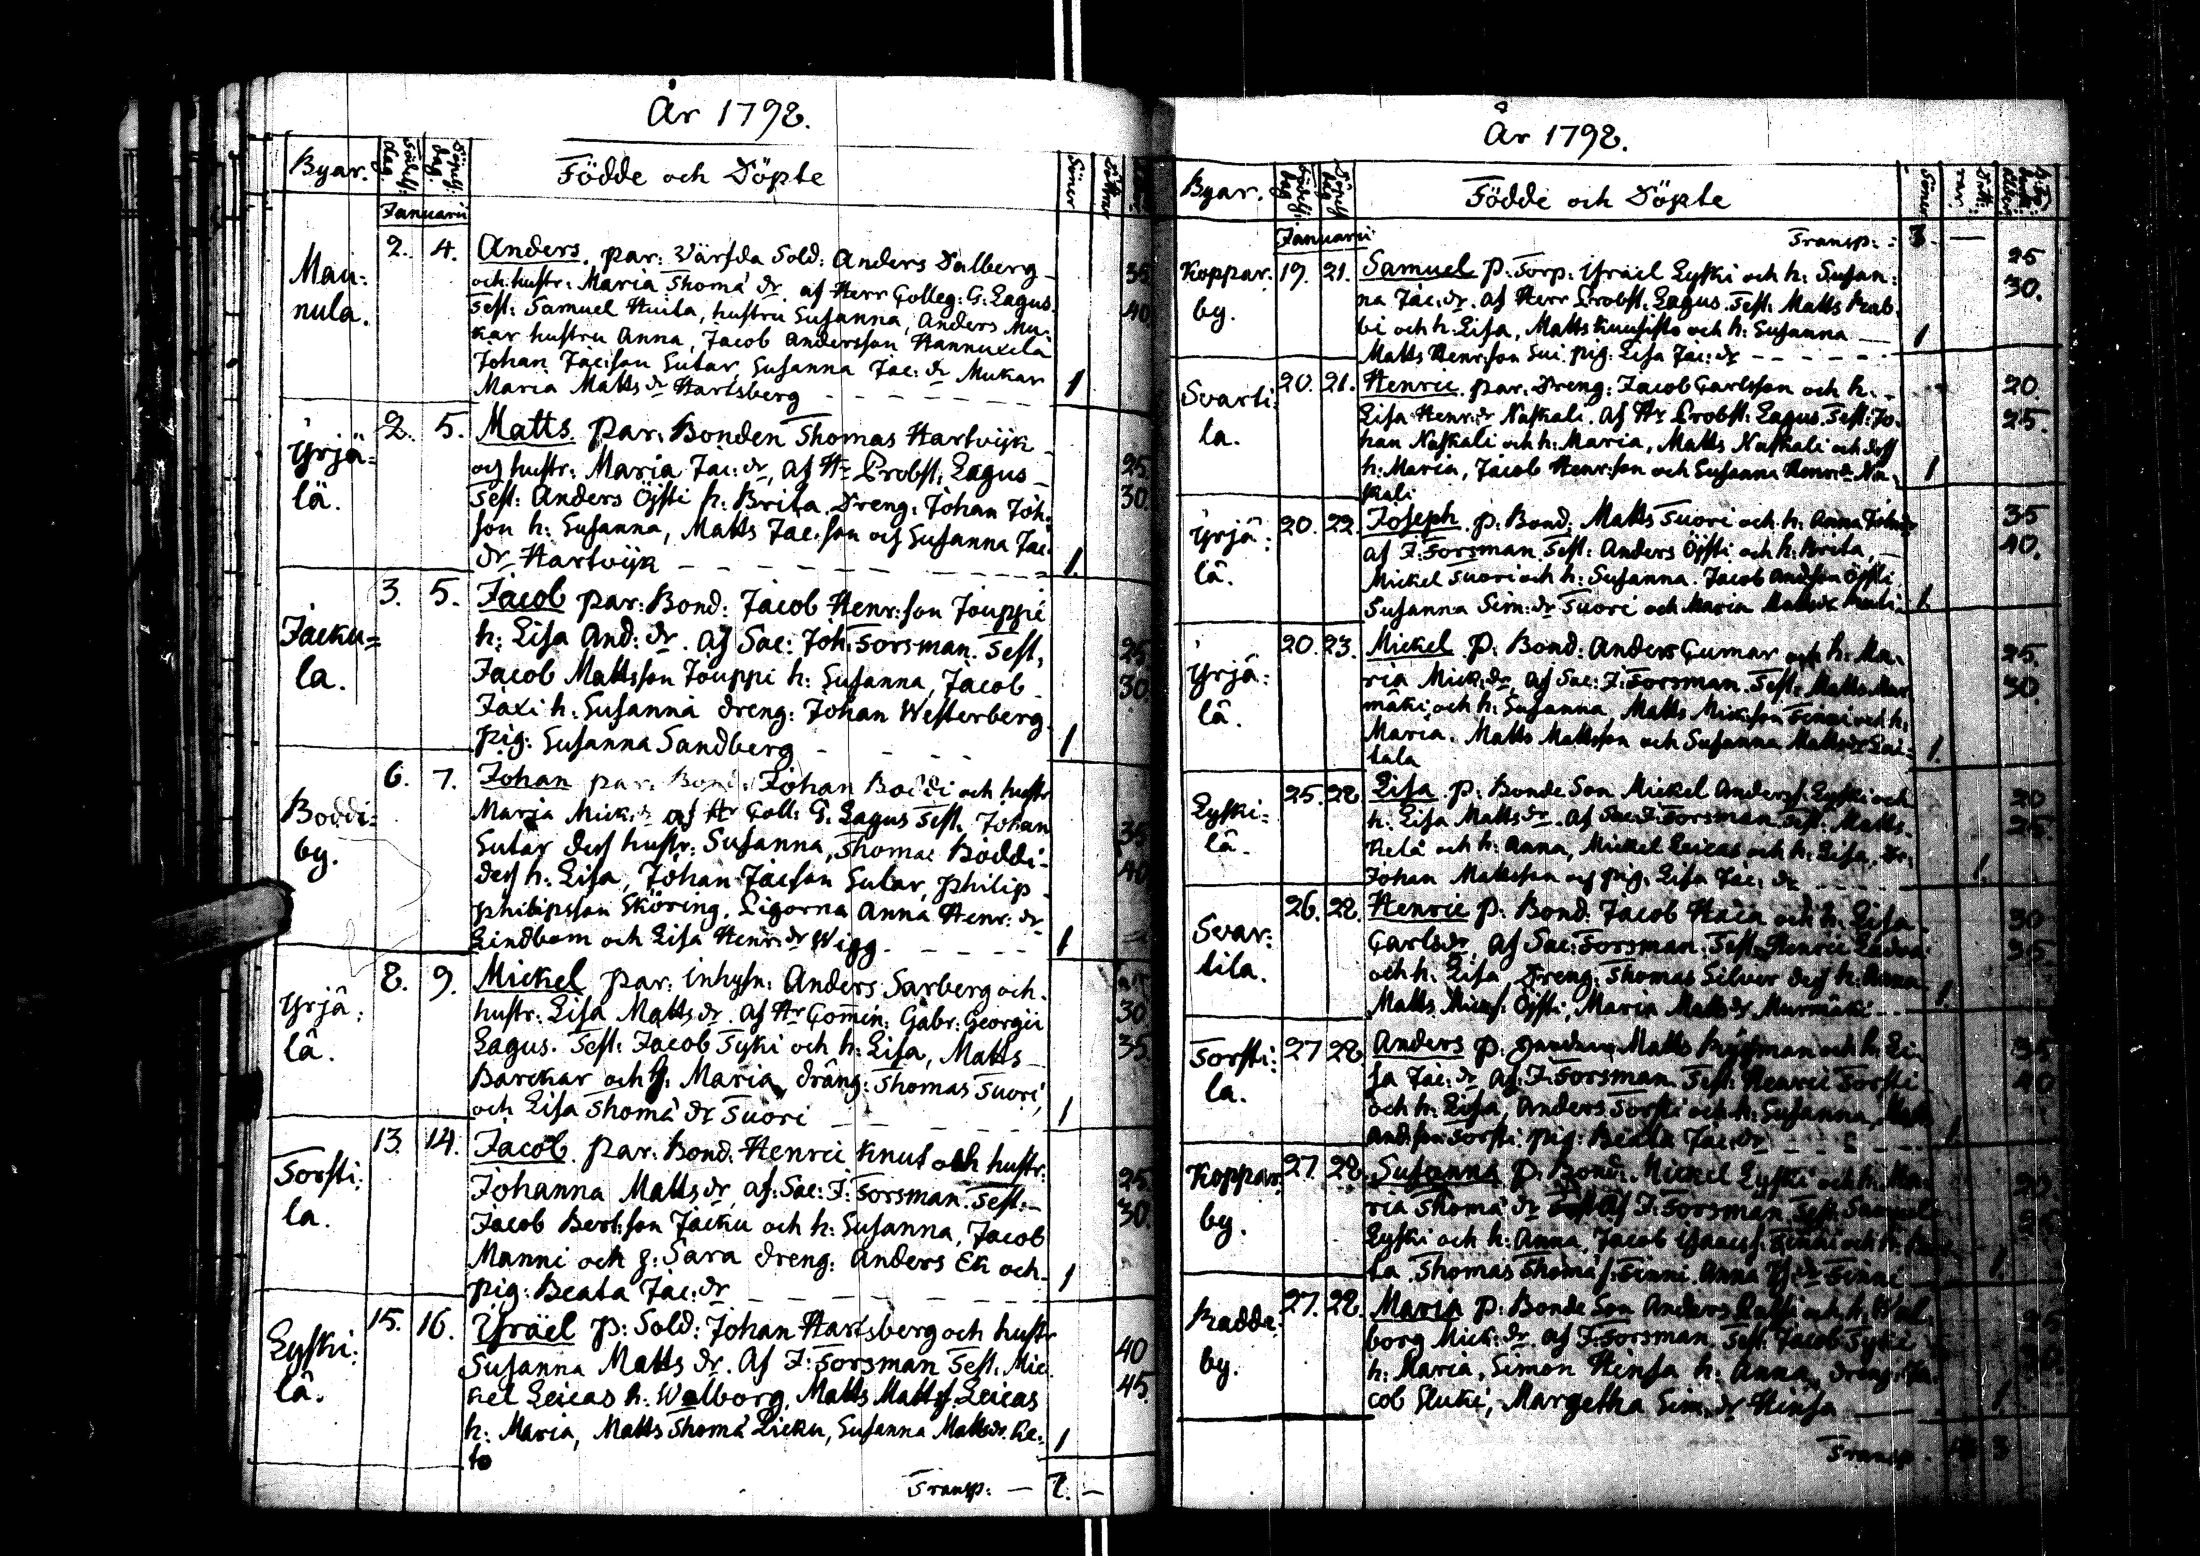 År 1792.
Byar.
Födelse dag.
Döpelse dag.
Födde och Döpte
Söner
Döttrar
Januarii
Man:
nula.
2. 4. Anders. par: Värfda Sold: Anders Dalberg
och hustr: Maria Thomæ dr. af Herr Colleg: G. Lagus.
Test: Samuel Huita, hustru Susanna, Anders Mu-
kar hustru Anna, Jacob Andersson Hannuxela
Johan Jac:son Sutar, Susanna Jac: dr Mukar
Maria Matts dr Hartsberg 1
35
40
Yrjä=
lä.
2. 5. Matts. par: Bonden Thomas Hartvijk
och hustr: Maria Jac: dr, af Hr Probst: Lagus
Test: Anders Öjsti h: Brita, Dreng: Johan Joh:
son h: Susanna, Matts Jac:son och Susanna Jac:
dr Hartvijk 1.
25
30.
Jacku=
la.
3. 5. Jacob par: Bond: Jacob Henr:son Jouppi
h: Lisa And: dr. af Sac: Joh: Forsman. Test,
Jacob Mattsson Jouppi h: Susanna, Jacob
Jaxi h: Susanna dreng: Johan Westerberg.
pig: Susanna Sandberg 1
25
30.
Boddi=
by.
6. 7. Johan par: Bond: Johan Boddi och hustr
Maria Mick: dr af Hr Coll: G. Lagus Test, Johan
Sutar dess hustr: Susanna, Thomas Boddi-
dess h: Lisa, Johan Jacson Sutar, Philip
Philipsson Sköring, Pigorna Anna Henr: dr
Lindbom och Lisa Henr: dr Wigg. 1
35
40
Yrjä:
lä.
8. 9. Mickel par: inhysn: Anders Sarberg och
hustr: Lisa Matts dr. af Hr Com̄in: Gabr: Georgii
Lagus. Test: Jacob Tyki och h: Lisa, Matts
Barckar och h: Maria, dräng: Thomas Tuori,
och Lisa Thomæ dr Tuori 1
30
35.
Torsti:
la.
13. 14. Jacob. par: Bond: Henric Knut och hustr:
Johanna Matts dr, af: Sac: J: Forsman. Test:
Jacob Bert:son Jacku och h: Susanna, Jacob
Manni och h: Sara dreng: Anders Ek och
pig: Beata Jac: dr 1
25
30.
Lyski:
lä.
15. 16. Ysraël p: Sold: Johan Hartsberg och hustr
Susanna Matts dr. af J: Forsman Test. Mic
kel Leicas h: Walborg, Matts Matts: Leicas
h: Maria, Matts Thomæ Licku, Susanna Matts dr. Ke:
to 1
40
45.
Transp: — 7. —
År 1792.
Byar.
Födelse dag
Döpelse dag
Födde och Döpte
Söner
Dött:
rar
Januarii
Transp: 7. —
Koppar:
by.
19. 21. Samuel p: Torp: Ysrael Lyski och h: Susan:
na Jac: dr. af Herr Probst: Lagus. Test: Matts Rab
bi och h: Lisa, Matts Kuusisto och h: Susanna
Matts Henr:son Sui pig: Lisa Jac: dr 1
25
30.
Svarti:
la.
20. 21. Henric par: Dreng: Jacob Carlsson och h:
Lisa Henr: dr Naskali. af Hr Probst: Lagus. Test: Jo-
han Naskali och h: Maria, Matts Naskali och dess
h: Maria, Jacob Henr:son och Susanna Henr: dr Na:
skali 1
20.
25.
Yrjä:
lä.
20. 22. Joseph p: Bond: Matts Tuori och h: Anna Joh: dr
af J: Forsman. Test: Anders Öjsti och h: Brita,
Mickel Tuori och h: Susanna. Jacob Andson Öjsti
Susanna Sim: dr Tuori och Maria Matts dr 1.
35
40.
Yrjä:
lä.
20. 23. Mickel p: Bond: Anders Gumar och h: Ma-
ria Mick: dr, af Sac: J: Forsman. Test: Matts Mur
mäki och h: Susanna, Matts Mickson Finni och h:
Maria. Matts Mattsson och Susanna Matts dr Lai-
tala 1.
25.
30.
Lyski=
lä.
25. 28. Lisa p: Bonde Son Mickel Anders: Lyski och
h: Lisa Matts dr. af Sac: J: Forsman. Test: Matts
Kela och h: Anna, Mickel Leicas och h: Lisa, Dr:
Johan Mattsson och pig: Lisa Jac: dr 1.
20
25.
Svar:
tila.
26. 28. Henric p: Bond: Jacob och h: Lisa
Carls dr. af Sac: Forsman. Test: Henric
och h: Lisa Dreng: Thomas Silver dess h: Anna
Matts Micks: Öjsti, Maria Matts dr Murmäki 1
30
35.
Torsti:
la.
27 28 Anders p: Matts och h: Li
sa Jac: dr af: J: Forsman. Test: Henric Torsti
och h: Lisa, Anders Torsti och h: Susanna, Matts
Andson Torsti pig: Beata Jac: dr 1
35
40
Koppar:
by.
27. 28. Susanna p: Bond: Mickel Lyski och h: Ma-
ria Thomæ dr af J: Forsman Test: Samuel
Lyski och h: Anna, Jacob Finni och h:
ta. Thomas Thomæ s: Finni Anna dr Finni 1.
20.
Radde:
by.
27. 28. Maria p: Bonde Son Anders och h: Wal
borg Mick: dr. af J: Forsman. Test: Jacob Tyki
h: Maria, Simon Heinsa h: Anna, dreng: Ja
cob Sluki, Margetha Sim: dr Heinsa 1
Transp 3